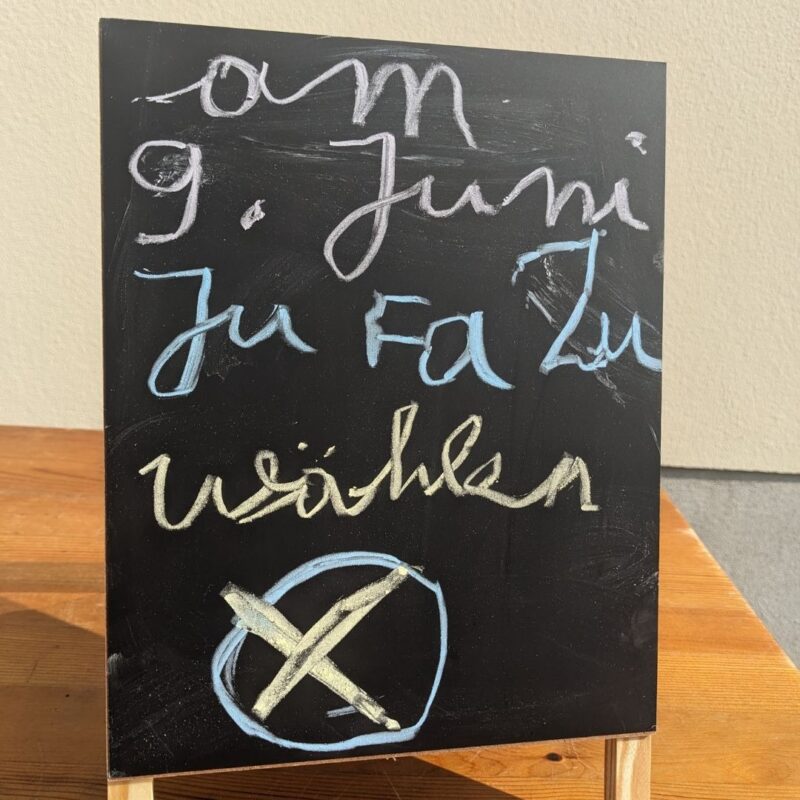 am
9. Juni
JuFaZu
wählen